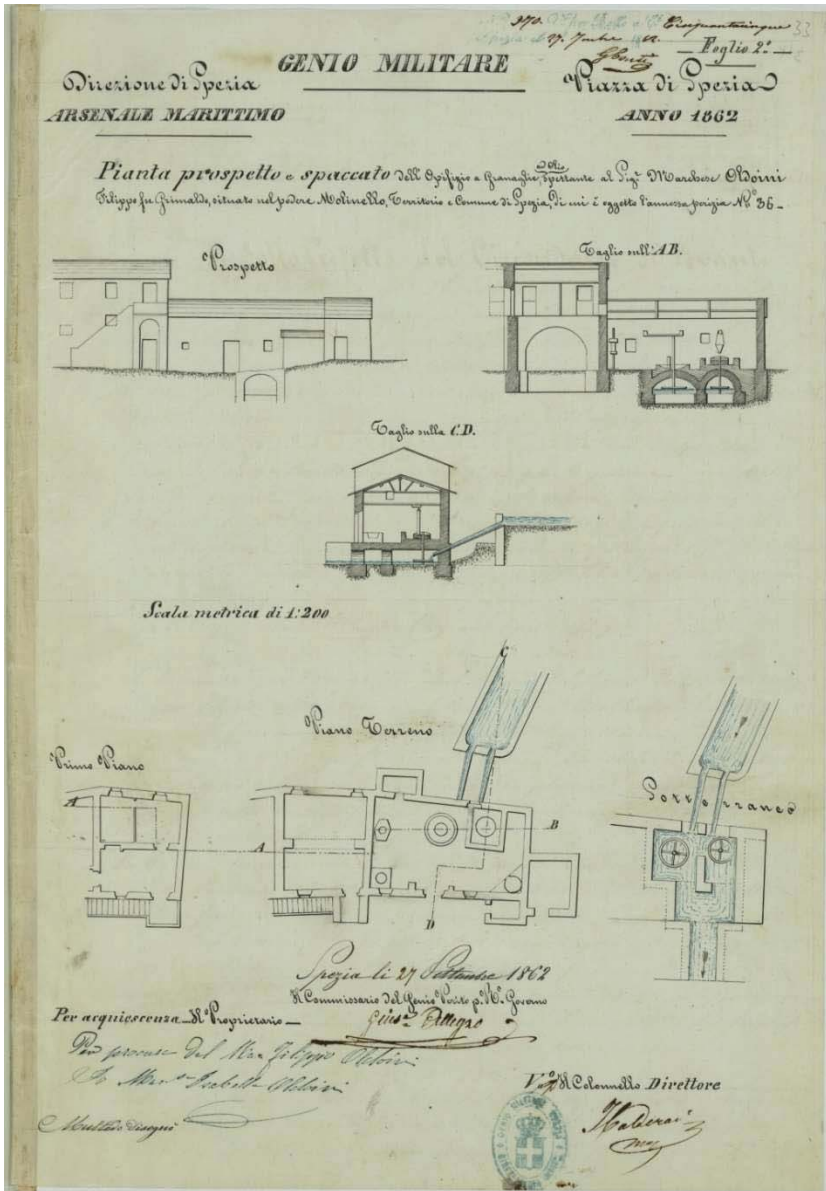 970.
Cinquantacinque
33
27. 7mbre 62.
Foglio 2º.
GENIO MILITARE
Direzione di Spezia
Piazza di Spezia
ARSENALE MARITTIMO
ANNO 1862
Pianta prospetto e spaccato dell'Opifizio a Granaglie, ed Olio spettante al Sigr. Marchese Oldoini
Filippo fu Grimaldo, situato nel podere Molinello, Territorio e Comune di Spezia, di cui è oggetto l'annessa perizia Nº 36 –
Prospetto
Taglio sull' AB.
Taglio sulla C.D.
Scala metrica di 1:200
C
Piano Terreno
Primo Piano
Sotterraneo
A
A
B
D
Spezia li 27 Settembre 1862
Il Commissario del Genio Perito p. Rº. Governo
Per acquiescenza – Il Proprietario –
Per procura del Mse Filippo Oldoini
Isabella Oldoini
Vº Il Colonnello Direttore
disegnò